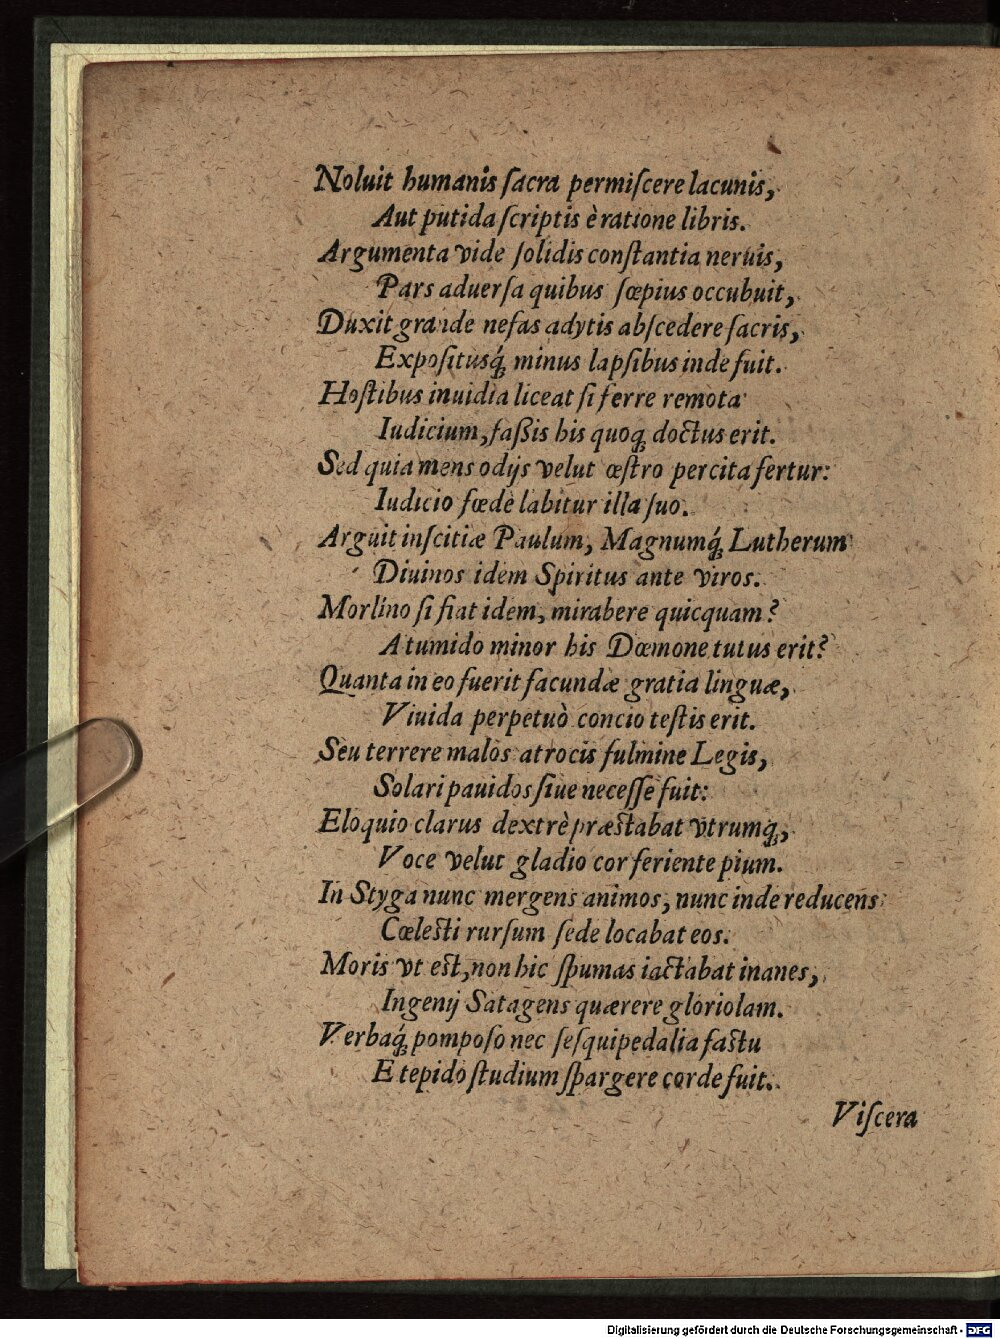 Noluit humanis ſacra permiſcere lacunis,
Aut putida ſcriptis è ratione libris.
Argumenta vide ſolidis conſtantia neruis,
Pars aduerſa quibus ſœpius occubuit,
Duxit grande nefas adytis abſcedere ſacris,
Expoſitusq́; minus lapſibus inde fuit.
Hoſtibus inuidia liceat ſi ferre remota
Iudicium, faßis his quoq; doctus erit.
Sed quia mens odijs velut œſtro percita fertur:
Iudicio fœdè labitur illa ſuo.
Arguit inſcitiæ Paulum, Magnumq́; Lutherum
Diuinos idem Spiritus ante viros.
Morlino ſi fiat idem, mirabere quicquam?
A tumido minor his Dœmone tutus erit?
Quanta in eo fuerit facundæ gratia linguæ,
Viuida perpetuò concio teſtis erit.
Seu terrere malos atrocis fulmine Legis,
Solari pauidos ſiue neceſſe fuit:
Eloquio clarus dextrè præstabat vtrumq;,
Voce velut gladio cor feriente pium.
In Styga nunc mergens animos, nunc inde reducens
Cœlesti rurſum ſede locabat eos.
Moris vt est, non hic ſpumas iactabat inanes,
Ingenij Satagens quærere gloriolam.
Verbaq́; pompoſo nec ſeſquipedalia faſtu
E tepido ſtudium ſpargere corde fuit.
Viſcera
Digitalisierung gefördert durch die Deutsche Forschungsgemeinschaft - DFG